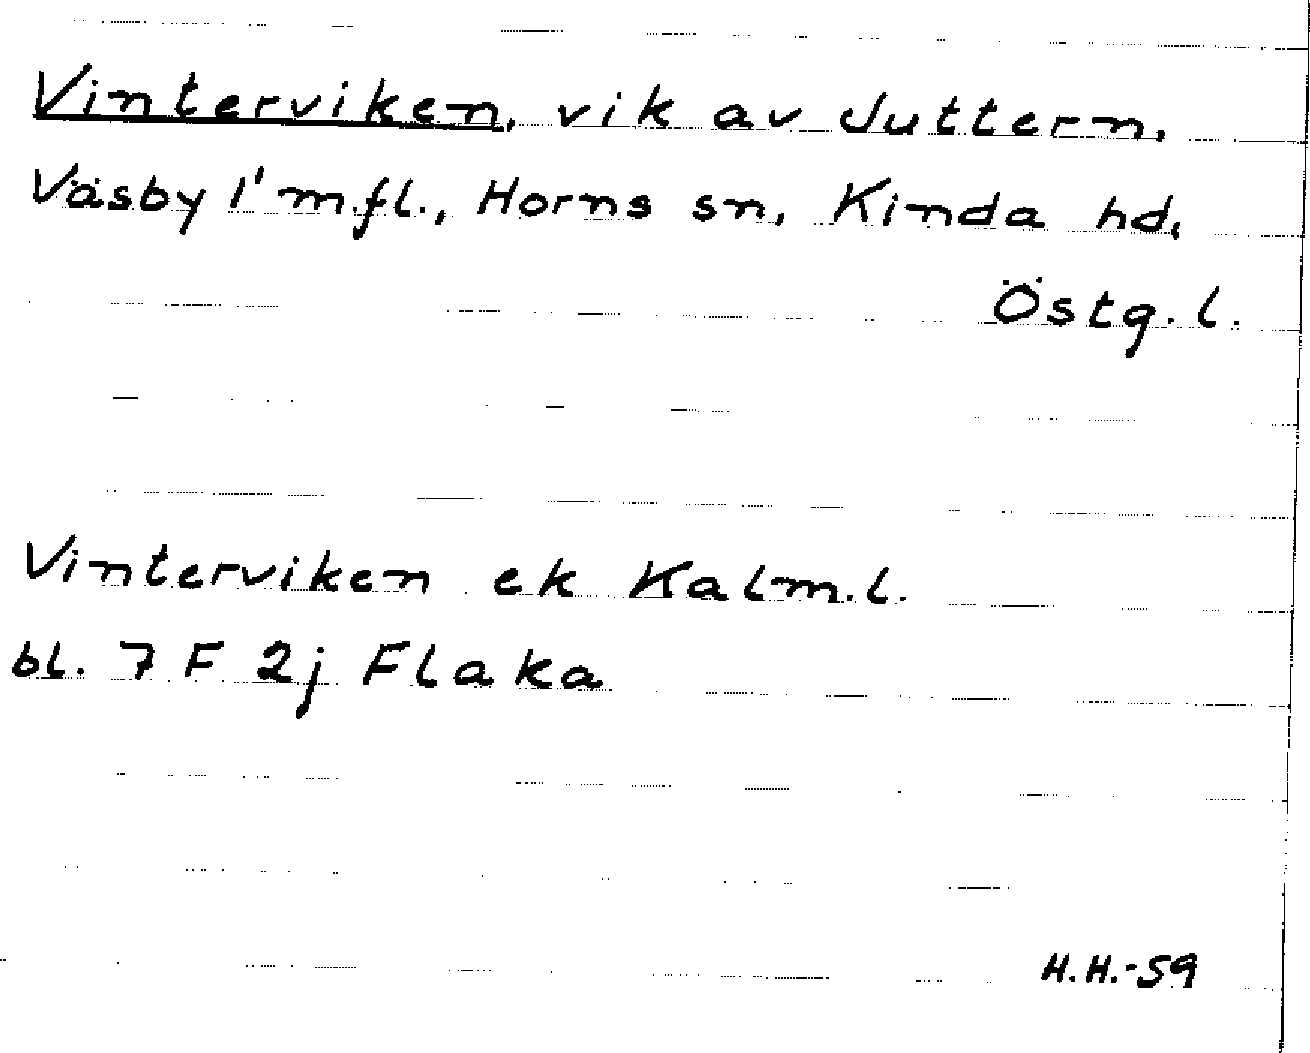 Vinterviken, vik av Juttern,
Väsby 1' m.fl., Horns sn, Kinda hd,
Östg. l.
Vinterviken ek Kalm.l.
bl. 7 F 2j Flaka
H.H.-59